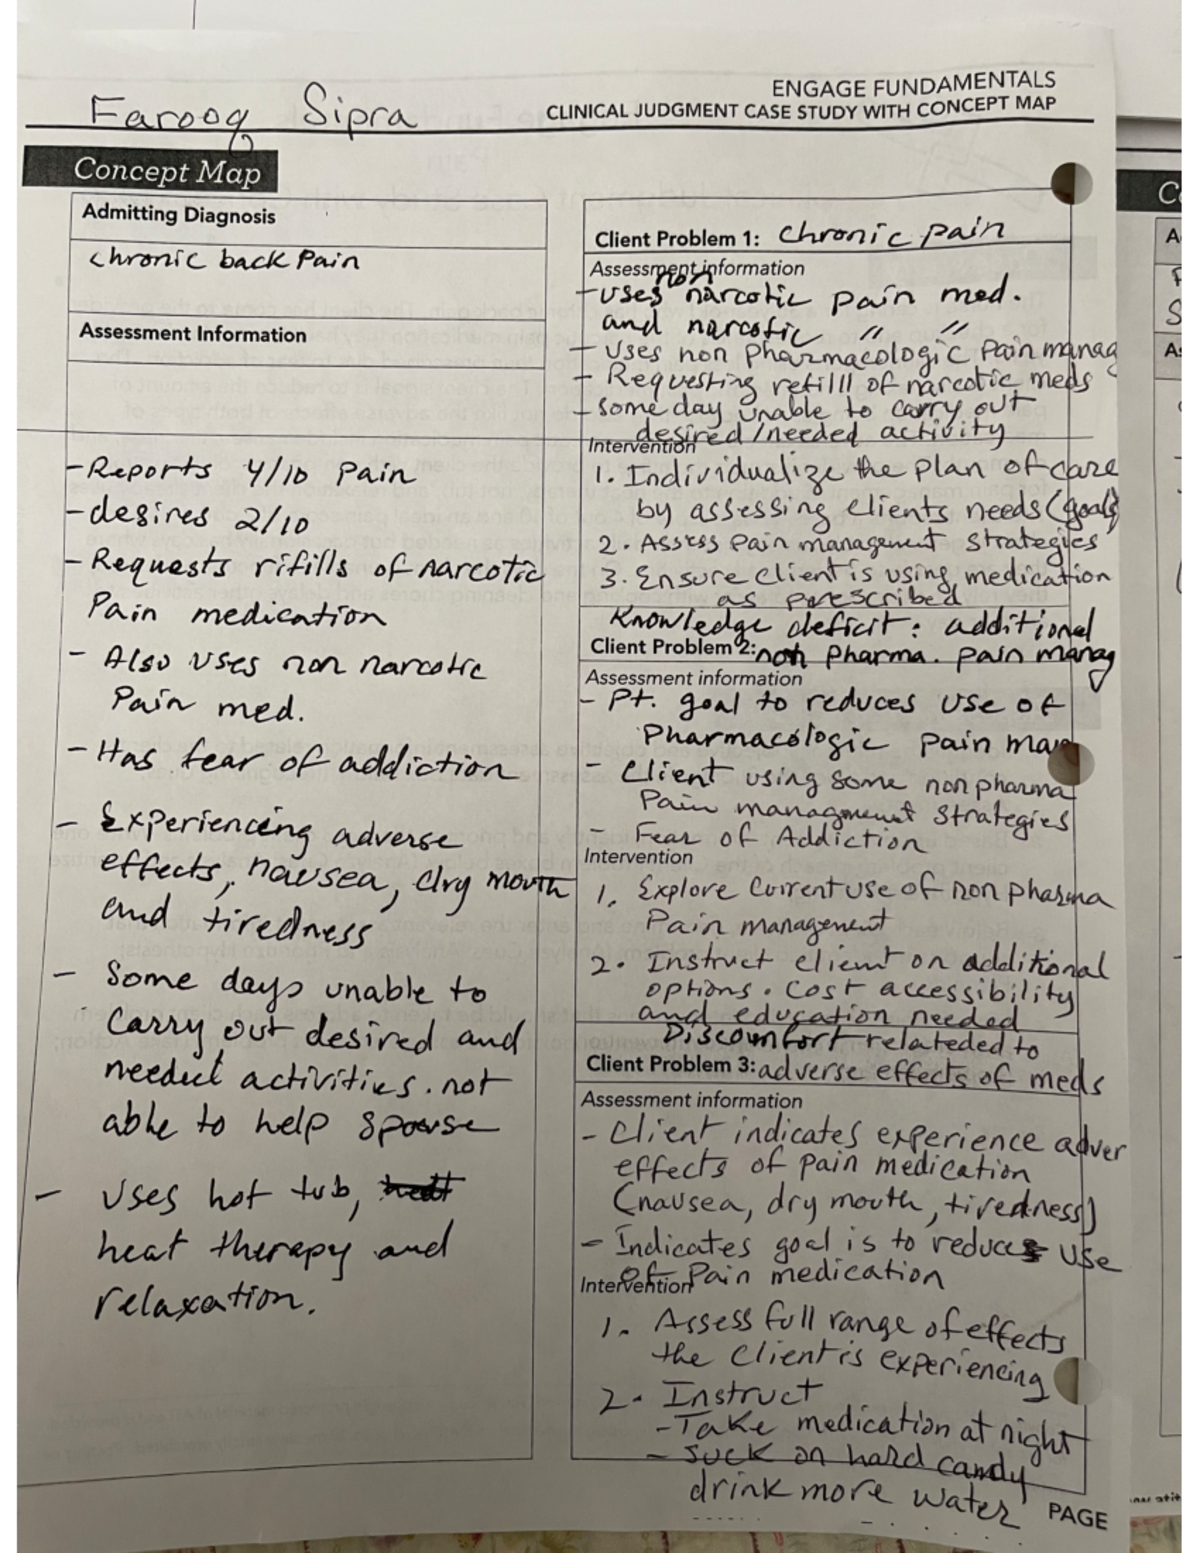 Farooq Sipra
ENGAGE FUNDAMENTALS
CLINICAL JUDGMENT CASE STUDY WITH CONCEPT MAP
Concept Map
Admitting Diagnosis
chronic back Pain
Assessment Information
- Reports 4/10 Pain
- desires 2/10
- Requests rifills of narcotic
Pain medication
- Also uses non narcotic
Pain med.
- Has fear of addiction
- Experiencing adverse
effects, nausea, dry mouth
and tiredness
- Some days unable to
carry out desired and
needed activities. not
able to help spouse
- Uses hot tub,
heat therapy and
relaxation.
Client Problem 1: Chronic pain
Assessment information
non
- uses narcotic pain med.
and narcotic " "
- Uses non pharmacologic Pain manag
- Requesting refilll of narcotic meds
- some day unable to carry out
desired/needed activity
Intervention
1. Individualize the plan of care
by assessing clients needs (goals
2. Assess pain management strategies
3. Ensure client is using medication
as prescribed
Knowledge deficit: additional
Client Problem 2: non pharma. pain manag
Assessment information
- Pt. goal to reduces use of
Pharmacologic pain mana
- Client using some non pharma
Pain managment Strategies
- Fear of Addiction
Intervention
1. Explore current use of non pharma
Pain management
2. Instruct client on additional
options. cost accessibility
and education needed
Discomfort relateded to
Client Problem 3: adverse effects of meds
Assessment information
- Client indicates experience adver
effects of pain medication
(nausea, dry mouth, tiredness)
- Indicates goal is to reduces use
of Pain medication
Intervention
1. Assess full range of effects
the client is experiencing
2. Instruct
- Take medication at night
- suck on hard candy
drink more water
PAGE